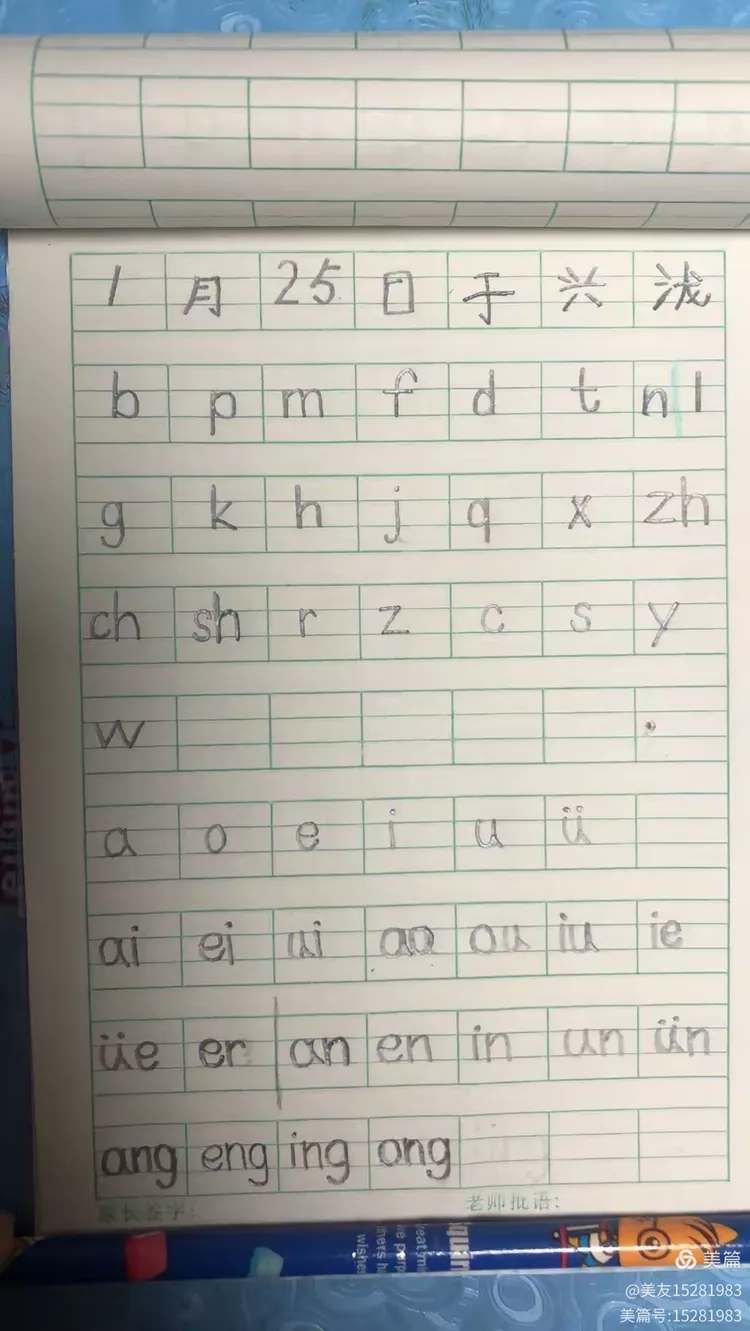 1 月 25 日 于 兴 泷
b p m f d t n l
g k h j q x zh
ch sh r z c s y
w
a o e i u ü
ai ei ui ao ou iu ie
üe er an en in un ün
ang eng ing ong
老师批语:
美篇
@美友15281983
美篇号:15281983